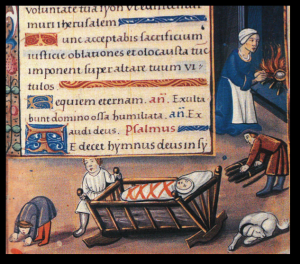 voluntate tua syon vt
muri iherusalem
Tunc acceptabis sacrificium
iusticie oblationes et olocausta tuc
imponent super altare tuum vi
tulos
Requiem eternam. an. Exulta
bunt domino ossa humiliata. an. Ex
audi deus. Psalmus
Te decet hymnus deus in sy